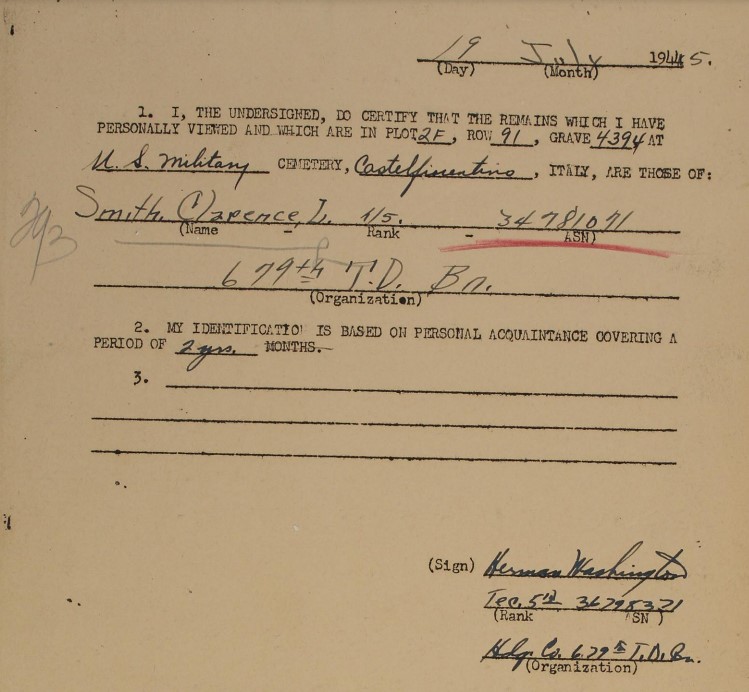 19 July 1945.
(Day) (Month)
1. I, THE UNDERSIGNED, DO CERTIFY THAT THE REMAINS WHICH I HAVE
PERSONALLY VIEWED AND WHICH ARE IN PLOT 2F, ROW 91, GRAVE 4394 AT
U. S. Military CEMETERY, Castelfiorentino, ITALY, ARE THOSE OF:
Smith, Clarence, L. T/5. - 34781071
(Name - Rank - ASN)
679th T.D. Bn.
(Organization)
2. MY IDENTIFICATION IS BASED ON PERSONAL ACQUAINTANCE COVERING A
PERIOD OF 2 yrs. MONTHS.
3.
(Sign) Herman Washington
Tec. 5th 36795321
(Rank ASN)
Hdq. Co. 679th T.D. Bn.
(Organization)